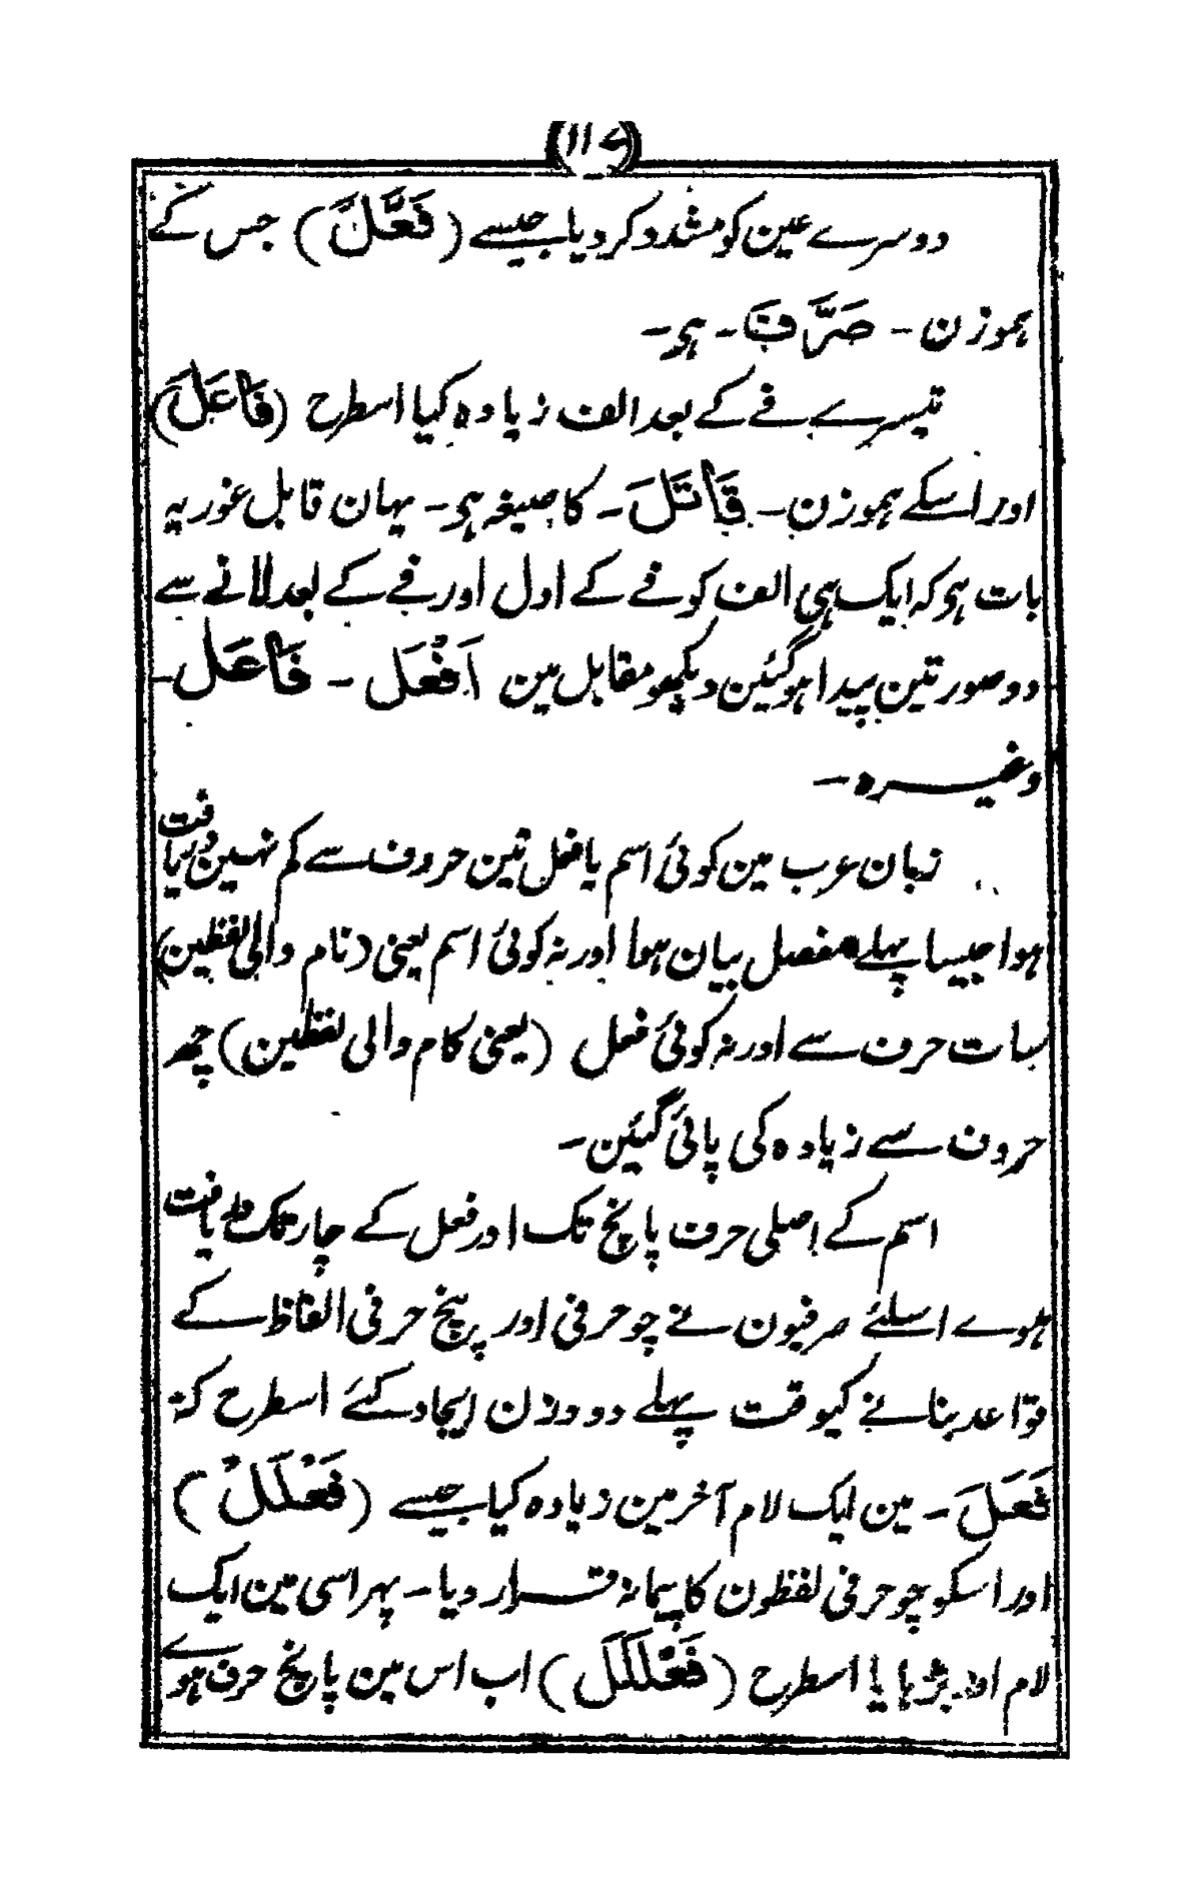 (۱۱۷)
دوسرے عین کو مشدد کر دیا جیسے (فَعَّلَ) جس کے
ہموزن - صَرَّفَ - ہی -
تیسرے فے کے بعد الف زیادہ کیا اسطرح (فَاعَلَ)
اور اسکے ہموزن - قَاتَلَ - کا صیغہ ہی - یہان قابل غور یہ
بات ہی کہ ایک ہی الف کو فے کے اول اور فے کے بعد لانے سے
دو صورتین پیدا ہو گئین دیکھو مقابل مین اَفْعَل - فَاعَل -
وغیرہ -
زبان عرب مین کوئی اسم یا فعل تین حروف سے کم نہین دریافت
ہوا جیسا پہلے مفصل بیان ہوا اور نہ کوئی اسم یعنی (نام والی لفظین)
سات حرف سے اور نہ کوئی فعل (یعنی کام والی لفظین) چھ
حروف سے زیادہ کی پائی گئین -
اسم کے اصلی حرف پانچ تک اور فعل کے چار تک دریافت
ہوے اسلئے صرفیون نے چو حرفی اور پنج حرفی الفاظ کے
قواعد بنانے کیوقت پہلے دو وزن ایجاد کئے اسطرح کہ
فَعَلَ - مین ایک لام آخر مین زیادہ کیا جیسے (فَعْلَلَ)
اور اسکو چو حرفی لفظون کا پیمانہ قرار دیا - پہر اسی مین ایک
لام اور بڑہایا اسطرح (فَعْلَلَل) اب اس مین پانچ حرف ہوے